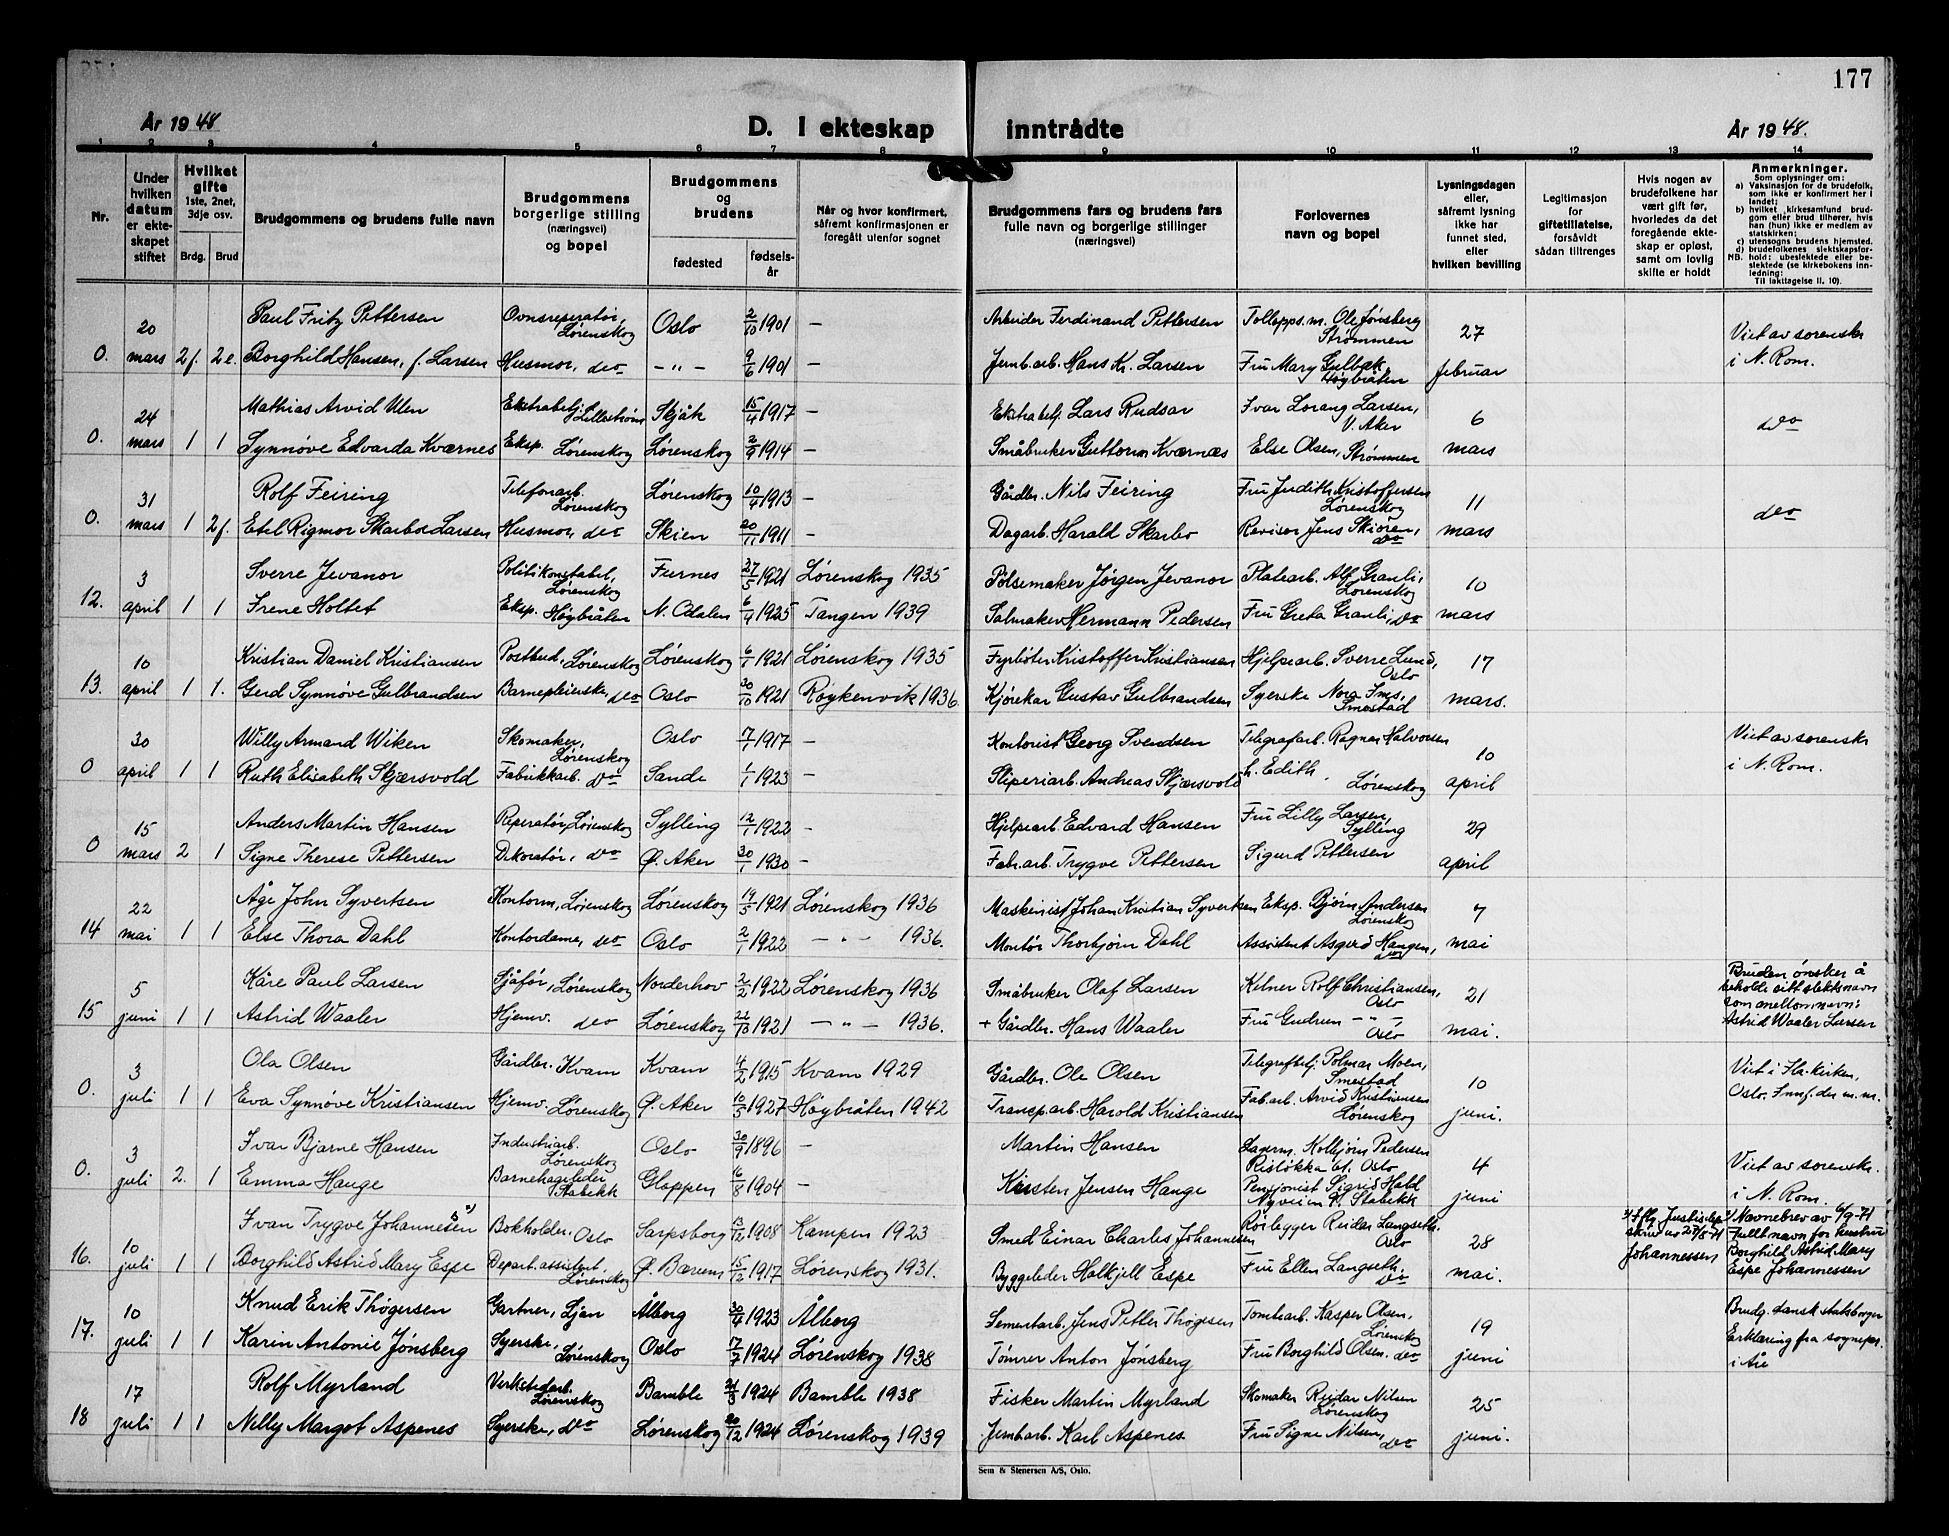 177
År 1948
D. I ekteskap
inntrådte
År 1948.
1 2 3 4 5 6 7 8 9 10 11 12 13 14
Nr.
Under hvilken datum er ekteskapet stiftet
Hvilket gifte 1ste, 2net, 3dje osv.
Brdg. Brud
Brudgommens og brudens fulle navn
Brudgommens borgerlige stilling (næringsvei) og bopel
Brudgommens og brudens
fødested
fødselsår
Når og hvor konfirmert, såfremt konfirmasjonen er foregått utenfor sognet
Brudgommens fars og brudens fars fulle navn og borgerlige stillinger (næringsvei)
Forlovernes navn og bopel
Lysningsdagen eller, såfremt lysning ikke har funnet sted, eller hvilken bevilling
Legitimasjon for giftetillatelse, forsåvidt sådan tiltrenges
Hvis nogen av brudefolkene har vært gift før, hvorledes da det foregående ekteskap er opløst, samt om lovlig skifte er holdt
Anmerkninger.
Som oplysninger om:
a) Vaksinasjon for de brudefolk, som ikke er konfirmert her i landet;
b) hvilket kirkesamfund brudgom eller brud tilhører, hvis han (hun) ikke er medlem av statskirken;
c) utensogns brudens hjemsted.
d) brudefolkenes slektskapsforhold; ubeslektede eller beslektede (se kirkebokens innledning:
NB.
Til iakttagelse II, 10).
20 Paul Fritz Pettersen Ovnsreparatør, Lørenskog Oslo 2/10 1901 – Arbeider Ferdinand Pettersen Tolopps.m. Ole Jønsberg Strømmen 27 Viet av sorenskr.
0. mars 2f. 2e. Borghild Hansen, f. Larsen Husmor, do – " – 9/6 1901 Jernb.arb. Hans Kr. Larsen Fru Mary Gulbæk, Høybråten februar i N. Rom.
24 Mathias Arvid Ulen Ekstrabetj. Lillestrøm Skjåk 15/4 1917 – Ekstrabetj. Lars Rudsar Ivar Lorang Larsen, V. Aker 6 do
0. mars 1 1 Synnøve Edvarda Kværnes Eksp. Lørenskog Lørenskog 2/9 1914 – Småbruker Guttorm Kværnæs Else Olsen, Strømmen mars
31 Rolf Feiring Telefonarb. Lørenskog Lørenskog 10/4 1913 – Gårdbr. Nils Feiring Fru Judith Kristoffersen Lørenskog 11 do
0. mars 1 2f. Etel Rigmor Skarbo Larsen Husmor, do Skien 20/11 1911 – Dagarb. Harald Skarbo Revisor Jens Skiøren, do mars
3 Sverre Jevanor Politikonstabel, Lørenskog Furnes 27/5 1921 Lørenskog 1935 Pølsemaker Jørgen Jevanor Platearb. Alf Granli, Lørenskog 10
12. april 1 1 Irene Holtet Eksp. Høybråten N. Odalen 6/4 1925 Tangen 1939 Salmaker Hermann Pedersen Fru Greta Granli, do mars
10 Kristian Daniel Kristiansen Postbud, Lørenskog Lørenskog 6/1 1921 Lørenskog 1935 Fyrbøter Kristoffer Kristiansen Hjelpearb. Sverre Lund, Oslo 17
13. april 1 1. Gerd Synnøve Gulbrandsen Barnepleierske, do Oslo 30/10 1921 Røykenvik 1936 Kjørekar Gustav Gulbrandsen Syerske Nora Sms, Smestad mars.
30 Willy Armand Wiken Skomaker, Lørenskog Oslo 7/1 1917 – Kontorist Georg Svendsen Telegrafarb. Ragnar Halvorsen 10 Viet av sorenskr
0 april 1 1 Ruth Elisabeth Skjærsvold Fabrikkarb. do Sande 1/1 1923 – Sliperiarb. Andreas Skjærsvold h. Edith Lørenskog april i N. Rom.
15 Anders Martin Hansen Reparatør, Lørenskog Sylling 12/1 1922 – Hjelpearb. Edvard Hansen Fru Lilly Larsen, Sylling 29
0 mars 2 1 Signe Therese Pettersen Dekoratør, do Ø. Aker 30/1 1930 – Fab.arb. Trygve Pettersen Sigurd Pettersen april
22 Åge John Syvertsen Kontorm., Lørenskog Lørenskog 19/5 1921 Lørenskog 1936 Maskinist Johan Kristian Syvertsen Eksp. Bjørn Andersen Lørenskog 7
14 mai 1 1 Else Thora Dahl Kontordame, do Oslo 2/1 1922 – " – 1936. Montør Thorbjørn Dahl Assistent Asgerd Haugen, mai
5 Kåre Paul Larsen Sjåfør, Lørenskog Norderhov 2/2 1922 Lørenskog 1936 Småbruker Olaf Larsen Kelner Rolf Christiansen, Oslo 21 Bruden ønsker å beholde sitt slektsnavn som mellomnavn:
15 juni 1 1 Astrid Waaler Hjemv. do Lørenskog 1921 – " – 1936. + Gårdbr. Hans Waaler Fru Gudrun – " – Oslo mai. Astrid Waaler Larsen
3 Ola Olsen Gårdbr. Kvam Kvam 4/2 1915 Kvam 1929 Gårdbr. Ole Olsen Telegrafbetj. Polmar Moen, Smestad 10 Viet i Fr.kirken,
0. juli 1 1 Eva Synnøve Kristiansen Hjemv. Lørenskog Ø. Aker 10/5 1927 Høybråten 1942 Transp.arb. Harold Kristiansen Fab.arb. Arvid Kristiansen Lørenskog juni. Oslo. Innf. der m. nr.
3 Ivar Bjarne Hansen Industriarb. Lørenskog Oslo 30/9 1896 – Martin Hansen Lagerm. Kolbjørn Pedersen Risløkka 61. Oslo 4 Viet av sorenskr.
0. juli 2. 1 Emma Hauge Barnehageleder Stabekk Gloppen 16/8 1904 – Kirsten Jensen Hauge Pensjonist Sigrid Hald Stabekk juni i N. Rom.
10 Ivan Trygve Johannesen Bokholder, Oslo Sarpsborg 13/12 1908 Kampen 1923 Smed Einar Charles Johannesen Rørlegger Reidar Langseth, Oslo 28 Iflg. Justisdep. skriv av 27/8-71 Johannessen Navnebrev av 6/9-71
16. juli 1 1 Borghild Astrid Mary Espe Depart.assistent, Lørenskog Ø. Bærum 15/12 1917 Lørenskog 1931. Byggeleder Halkjell Espe Fru Ellen Langseth, do mai. Fullt navn for hustru Borghild Astrid Mary Espe Johannessen
10 Knud Erik Thøgersen Gartner, Ljan Ålborg 30/4 1923 Ålborg Sementarb. Jens Petter Thøgesen Tomtearb. Kasper Olsen, Lørenskog 19 Brudg. dansk statsborger
17. juli 1 1 Karin Antonie Jønsberg Syerske, Lørenskog Oslo 17/7 1924 Lørenskog 1938 Tømrer Anton Jønsberg Fru Borghild Olsen. do juni Erklæring fra sognepr. i Åre
17 Rolf Myrland Verkstedarb. Lørenskog Bamble 21/3 1924 Bamble 1938 Fisker Martin Myrland Skomaker Reidar Nilsen Lørenskog 25
18 juli 1 1 Nelly Margot Aspenes Syerske, do Lørenskog 20/12 1924 Lørenskog 1939 Jernb.arb. Karl Aspenes Fru Signe Nilsen, do juni.
Sem & Stenersen A/S, Oslo.